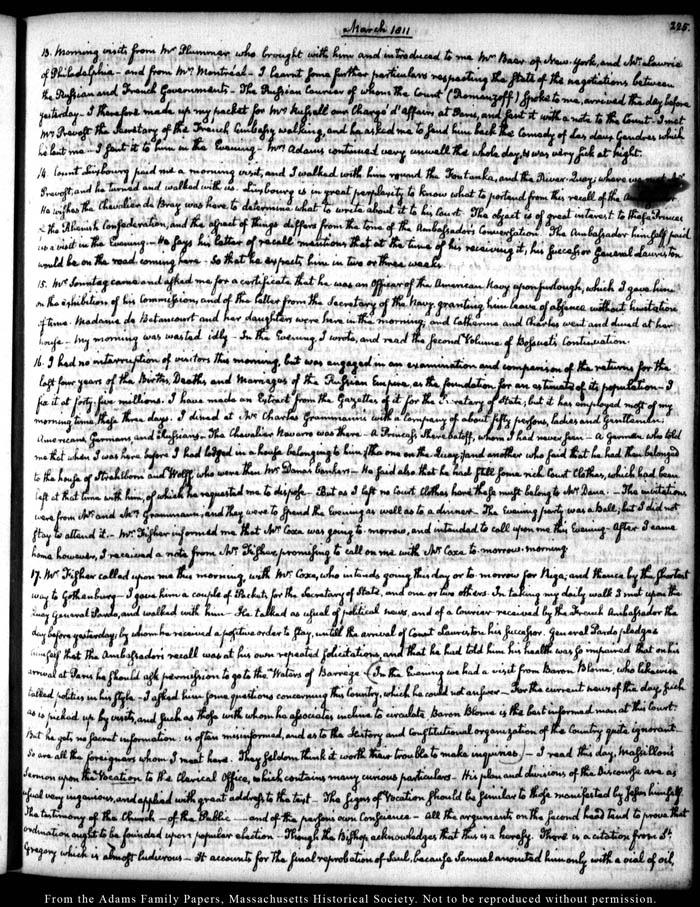 March 1811
225.
13. Morning visits from Mr Plummer who brought with him and introduced to me Mr Baer of New-York, and Mr Lawrie
of Philadelphia — and from Mr Montréal — I learnt some further particulars respecting the State of the negotiations between
the Russian and French Governments — The Russian Courier of whom the Count (Romanzoff) spoke to me, arrived the day before
yesterday — I therefore made up my packet for Mr Russell our Chargé d'Affairs at Paris, and sent it with a note to the Count — I met
Mr Prevost the Secretary of the French Embassy walking, and he asked me to send him back the Comedy of les deux Gendres which
he lent me — I sent it to him in the Evening — Mrs Adams continued very unwell the whole day, & was very sick at night.
14. Count Luxbourg paid me a morning visit, and I walked with him round the Fontanka, and the River-Quay; where we met Mr
Prevost, and he turned and walked with us. Luxbourg is in great perplexity to know what to portend from this recall of the
He wishes the Chevalier de Bray was here to determine what to write about it to his Court. The object is of great interest to these Princes
of the Rhenish Confederation, and the aspect of things differs from the tone of the Ambassadors Conversation. The Ambassador himself paid
us a visit in the Evening — He says his letter of recall mentions that at the time of his receiving it, his successor General Lauriston
would be on the road coming here. So that he expects him in two or three weeks.
15. Mr Sonntag came and asked me for a certificate that he was an Officer of the American Navy upon furlough, which I gave him
on the exhibition of his Commission, and of the letter from the Secretary of the Navy granting him leave of absence without limitation
of time. Madame de Betancourt and her daughters were here in the morning, and Catherine and Charles went and dined at her
house — My morning was wasted idly — In the Evening I wrote, and read the second Volume of Bossuet's Continuation.
16. I had no interruption of visitors this morning, but was engaged in an examination and comparison of the returns for the
last four years of the Births, Deaths and Marriages of the Russian Empire, as the foundation for an estimate of its population — I
fix it at forty-five millions. I have made an Extract from the Gazettes of it for the Secretary of State; but it has employed most of my
morning time these three days. I dined at Mr Charles Grammann's with a Company of about fifty persons, ladies and Gentlemen;
Americans Germans and Russians — The Chevalier Navarro was there — A Princess Sherebatoff, whom I had never seen — A German who told
me that when I was here before I had lodged in a house belonging to him (the one on the Quay;) and another who said that he had then belonged
to the house of Strahlborn and Wolff, who were then Mr Dana's bankers — He said also that he had still some rich Court Clothes, which had been
left at that time with him, of which he requested me to dispose — But as I left no Court Clothes here these must belong to Mr Dana. — The invitations
were from Mr and Mrs Grammann, and they were to spend the Evening as well as to a dinner — The Evening party was a Ball; but I did not
stay to attend it — Mr Fisher informed me that Mr Coxe was going to-morrow, and intended to call upon me this Evening — After I came
home however, I received a note from Mr Fisher, promising to call on me with Mr Coxe to-morrow-morning.
17. Mr Fisher called upon me this morning, with Mr Coxe, who intends going this day or to-morrow for Riga, and thence by the shortest
way to Gothenburg — I gave him a couple of Packets, for the Secretary of State, and one or two others. In taking my daily walk I met upon the
Quay General Pardo, and walked with him — He talked as usual of political news, and of a Courier received by the French Ambassador the
day before yesterday, by whom he received a positive order to stay, until the arrival of Count Lauriston his successor. General Pardo pledges
himself that the Ambassador's recall was at his own repeated solicitations, and that he had told him his health was so impaired that on his
arrival at Paris he should ask permission to go to the Waters of Barrege — (In the Evening we had a visit from Baron Blome, who likewise
talked politics in his style — I asked him some questions concerning this Country, which he could not answer — For the current news of the day, such
as is picked up by visits, and such as those with whom he associates incline to circulate Baron Blome is the best informed man at this Court.
But he gets no secret information, is often misinformed, and as to the History and Constitutional organization of the Country quite ignorant —
So are all the foreigners whom I meet here. They seldom think it worth their trouble to make inquiries) — I read this day, Massillon's
Sermon upon the Vocation to the Clerical Office, which contains many curious particulars — His plan and divisions of the Discourse are as
usual very ingenious, and applied with great address to the text — The signs of Vocation should be similar to those manifested by Jesus himself.
The testimony of the Church — of the Public — and of the persons own Conscience — All the arguments on the second head tend to prove that
ordination ought to be founded upon popular election — Though the Bishop acknowledges that this is a heresy. There is a citation from St.
Gregory which is almost ludicrous — It accounts for the final reprobation of Saul, because Samuel anointed him only with a vial of oil,
From the Adams Family Papers, Massachusetts Historical Society. Not to be reproduced without permission.